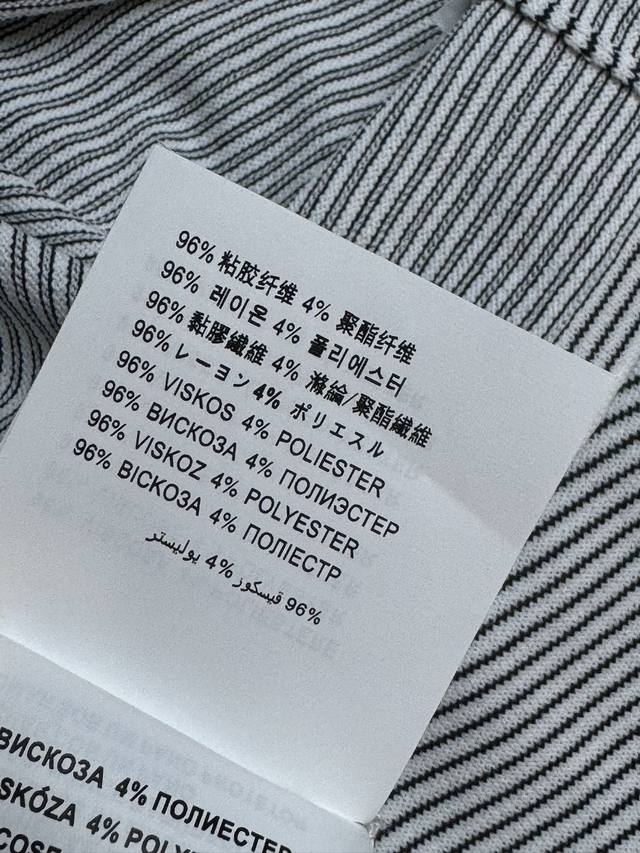 96% 粘胶纤维 4% 聚酯纤维
96% 레이온 4% 폴리에스터
96% 黏膠纖維 4% 滌綸/聚酯纖維
96% レーヨン 4% ポリエスル
96% VISKOS 4% POLIESTER
96% ВИСКОЗА 4% ПОЛИЭСТЕР
96% VISKOZ 4% POLYESTER
96% ВІСКОЗА 4% ПОЛІЕСТР
96% ڤيسكوز 4% يوليستر
ВИСКОЗА 4% ПОЛИЕСТЕР
SKÓZA 4% POLY